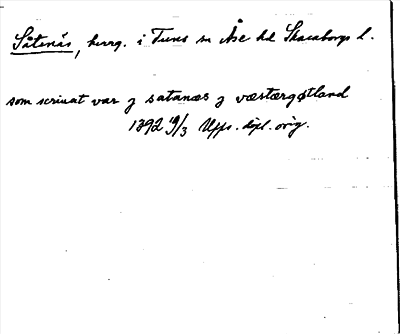 Såtenäs, herrg. i Tuns sn Åse hd Skaraborgs l.
som scriuat var j satanæs j væstærgøtland
1392 19/3 Upps. dipl. orig.